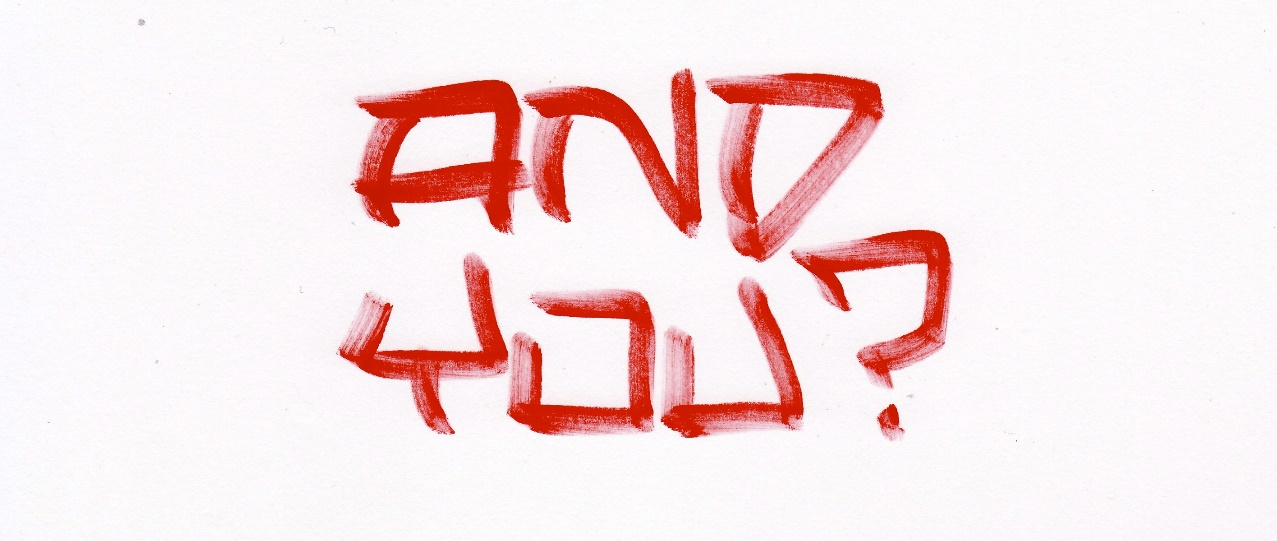 AND
YOU?